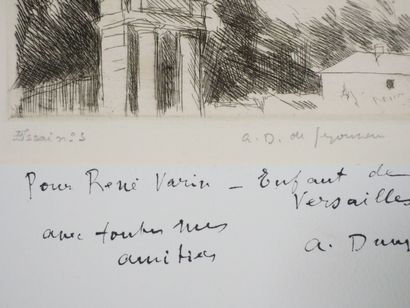 Essai n° 3
A. D. de
Pour René Varin - Enfant de
Versailles
avec toutes mes
amitiés
A.